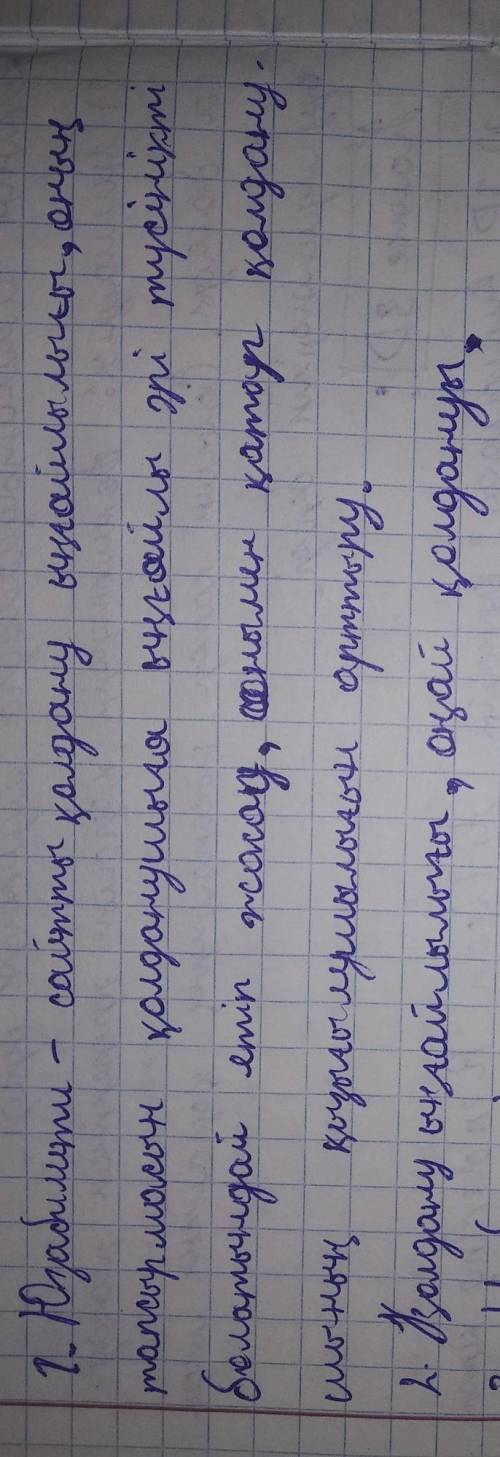 1. Юзабилити – сайтты қолдану ыңғайлылығы, оның
тапсырмасын қолданушыға ыңғайлы әрі түсінікті
болатындай етіп жасау, сонымен қатар қолдану-
шының қызығушылығын арттыру.
2. Қолдану ыңғайлылығы, оңай қолдануы.